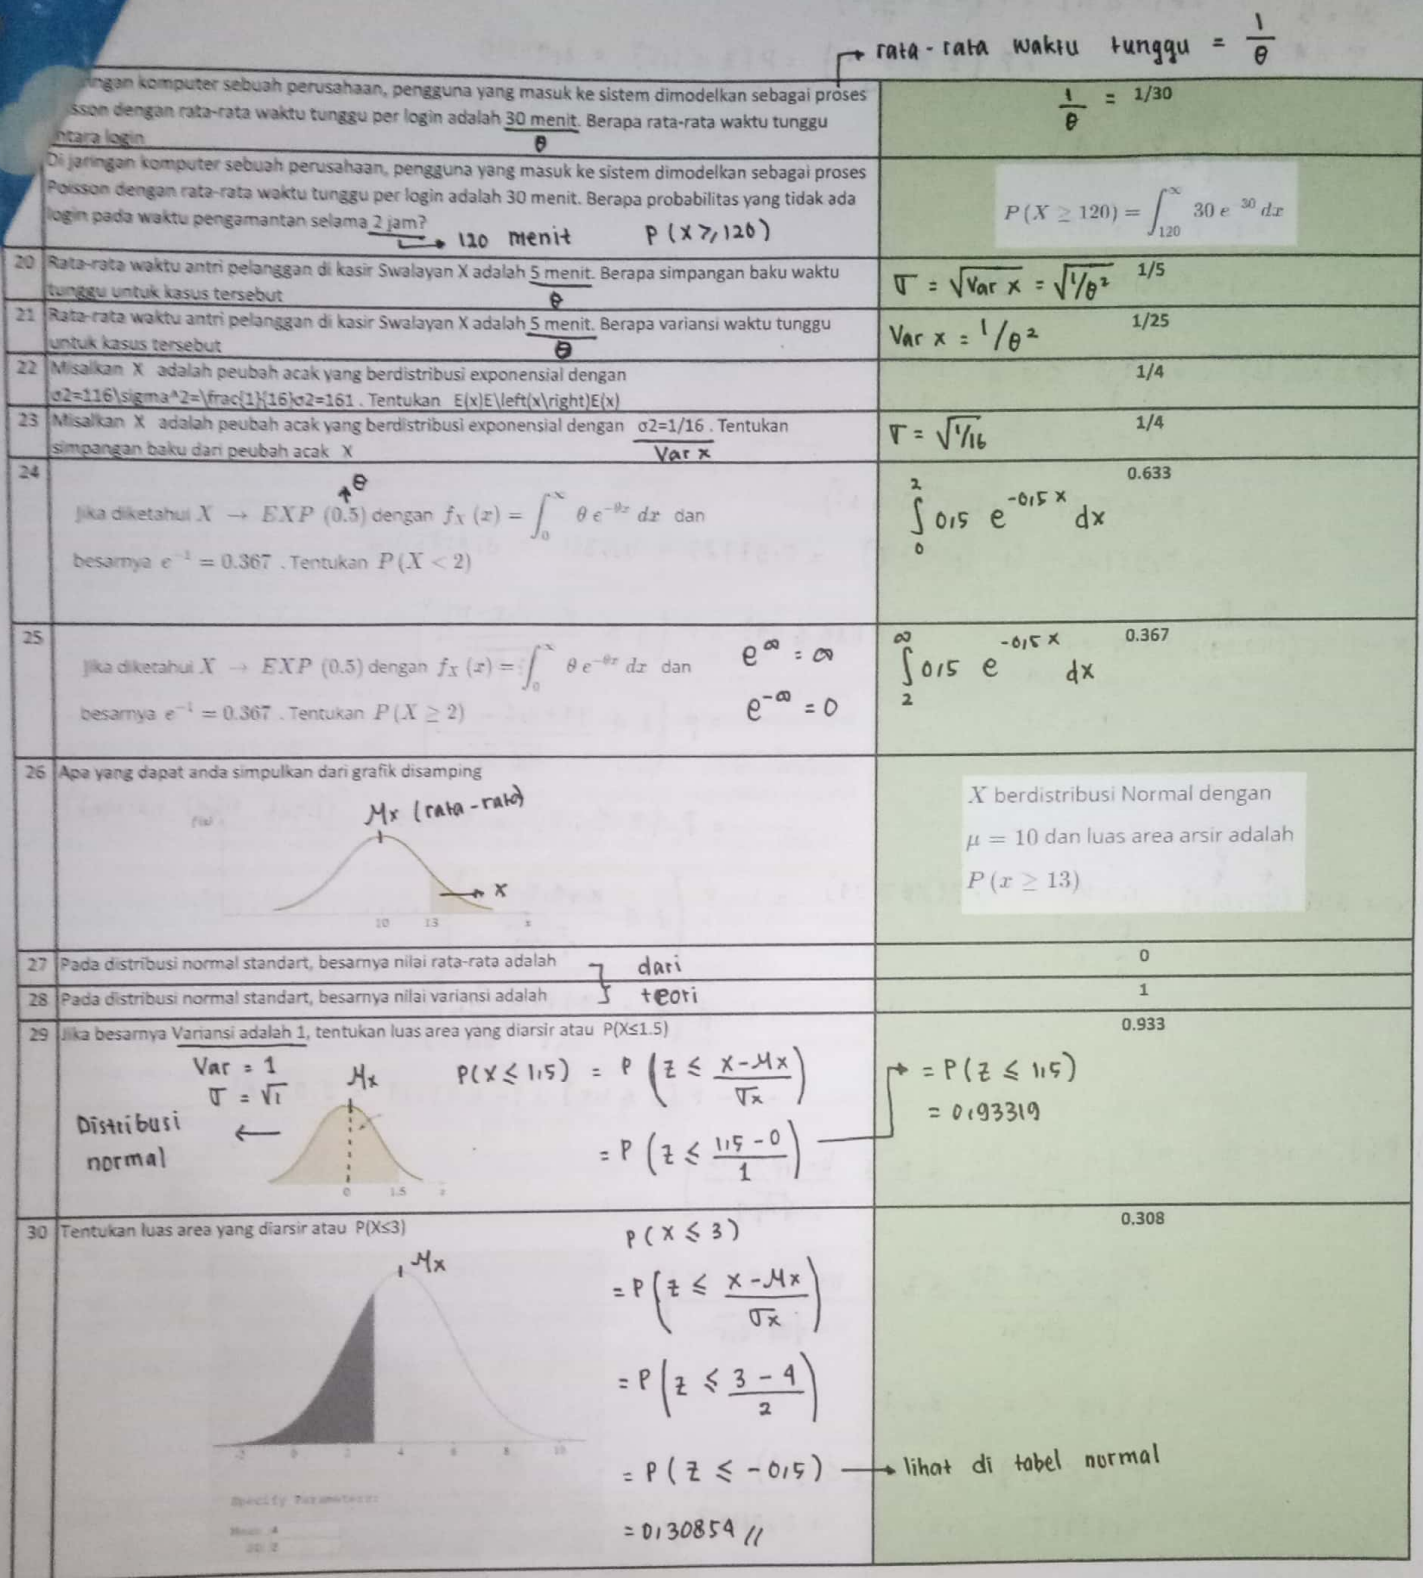 rata-rata waktu tunggu = 1/θ
ingan komputer sebuah perusahaan, pengguna yang masuk ke sistem dimodelkan sebagai proses
sson dengan rata-rata waktu tunggu per login adalah 30 menit. Berapa rata-rata waktu tunggu
ntara login
θ
1/θ = 1/30
Di jaringan komputer sebuah perusahaan, pengguna yang masuk ke sistem dimodelkan sebagai proses
Poisson dengan rata-rata waktu tunggu per login adalah 30 menit. Berapa probabilitas yang tidak ada
login pada waktu pengamantan selama 2 jam?
120 menit P(X ≥ 120)
P(X ≥ 120) = ∫₁₂₀^∞ 30 e^30 dx
20 Rata-rata waktu antri pelanggan di kasir Swalayan X adalah 5 menit. Berapa simpangan baku waktu
tunggu untuk kasus tersebut
θ
σ = √Var x = √1/θ² 1/5
21 Rata-rata waktu antri pelanggan di kasir Swalayan X adalah 5 menit. Berapa variansi waktu tunggu
untuk kasus tersebut
θ
Var x = 1/θ² 1/25
22 Misalkan X adalah peubah acak yang berdistribusi exponensial dengan
σ2=116\sigma^2=\frac{1}{16}σ2=161 . Tentukan E(x)E\left(x\right)E(x)
1/4
23 Misalkan X adalah peubah acak yang berdistribusi exponensial dengan σ2=1/16 . Tentukan
simpangan baku dari peubah acak X
Var x
σ = √1/16 1/4
24
θ
Jika diketahui X → EXP (0.5) dengan f_X (x) = ∫₀^∞ θ e^−θx dx dan
besarnya e^−1 = 0.367 . Tentukan P(X < 2)
0.633
∫₀² 0,5 e^−0,5x dx
25
Jika diketahui X → EXP (0.5) dengan f_X (x) = ∫₀^∞ θ e^−θx dx dan
besarnya e^−1 = 0.367 . Tentukan P(X ≥ 2)
e^∞ = ∞
e^−∞ = 0
0.367
∫₂^∞ 0,5 e^−0,5x dx
26 Apa yang dapat anda simpulkan dari grafik disamping
f(x)
μx (rata-rata)
x
10 13 x
X berdistribusi Normal dengan
μ = 10 dan luas area arsir adalah
P(x ≥ 13)
27 Pada distribusi normal standart, besarnya nilai rata-rata adalah
dari
0
28 Pada distribusi normal standart, besarnya nilai variansi adalah
teori
1
29 Jika besarnya Variansi adalah 1, tentukan luas area yang diarsir atau P(X≤1.5)
0.933
Var = 1
σ = √1
μx
Distribusi
normal
0 1.5
P(X ≤ 1,5) = P(z ≤ (x−μx)/σx)
= P(z ≤ (1,5−0)/1)
= P(z ≤ 1,5)
= 0,93319
30 Tentukan luas area yang diarsir atau P(X≤3)
0.308
μx
P(X ≤ 3)
= P(z ≤ (x−μx)/σx)
= P(z ≤ (3−4)/2)
= P(z ≤ −0,5)
lihat di tabel normal
= 0,30854 //
-2 0 2 4 6 8 10
Specify Parameters:
Mean 4
SD 2